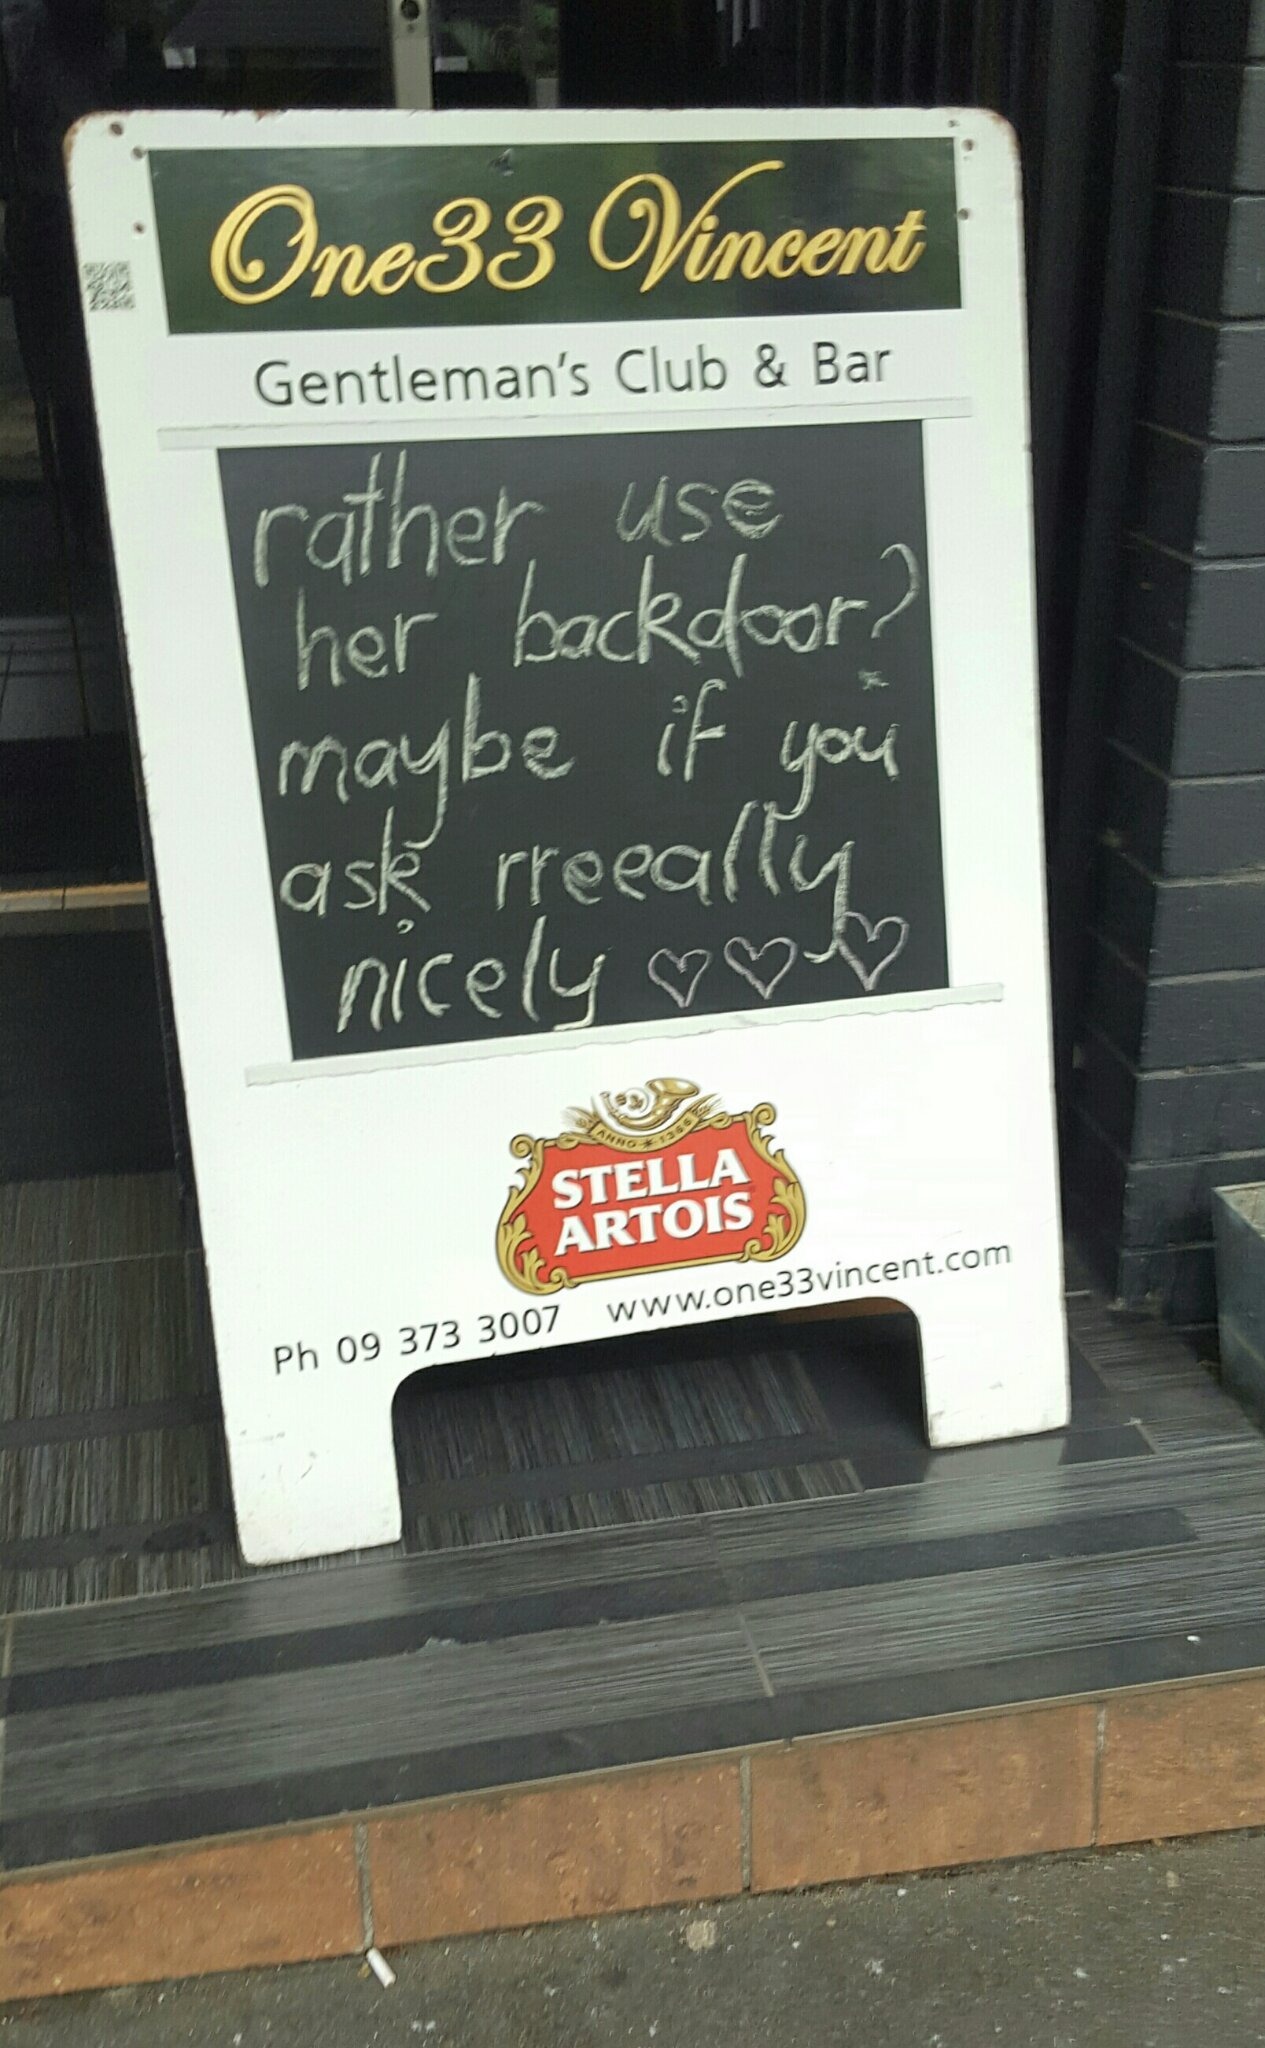 One33 Vincent
Gentleman's Club & Bar
rather use
her backdoor?
maybe if you
ask rreeally
nicely ♡♡♡
ANNO * 1366
STELLA
ARTOIS
Ph 09 373 3007 www.one33vincent.com